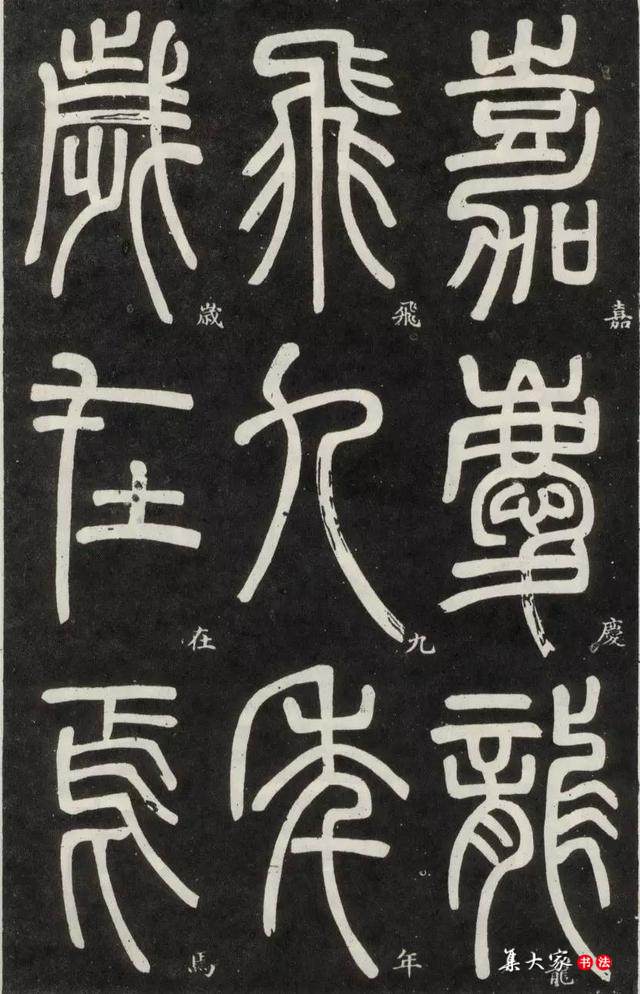 嘉慶龍
嘉慶龍
飛九年
飛九年
歲在焉
歲在焉
集大家书法